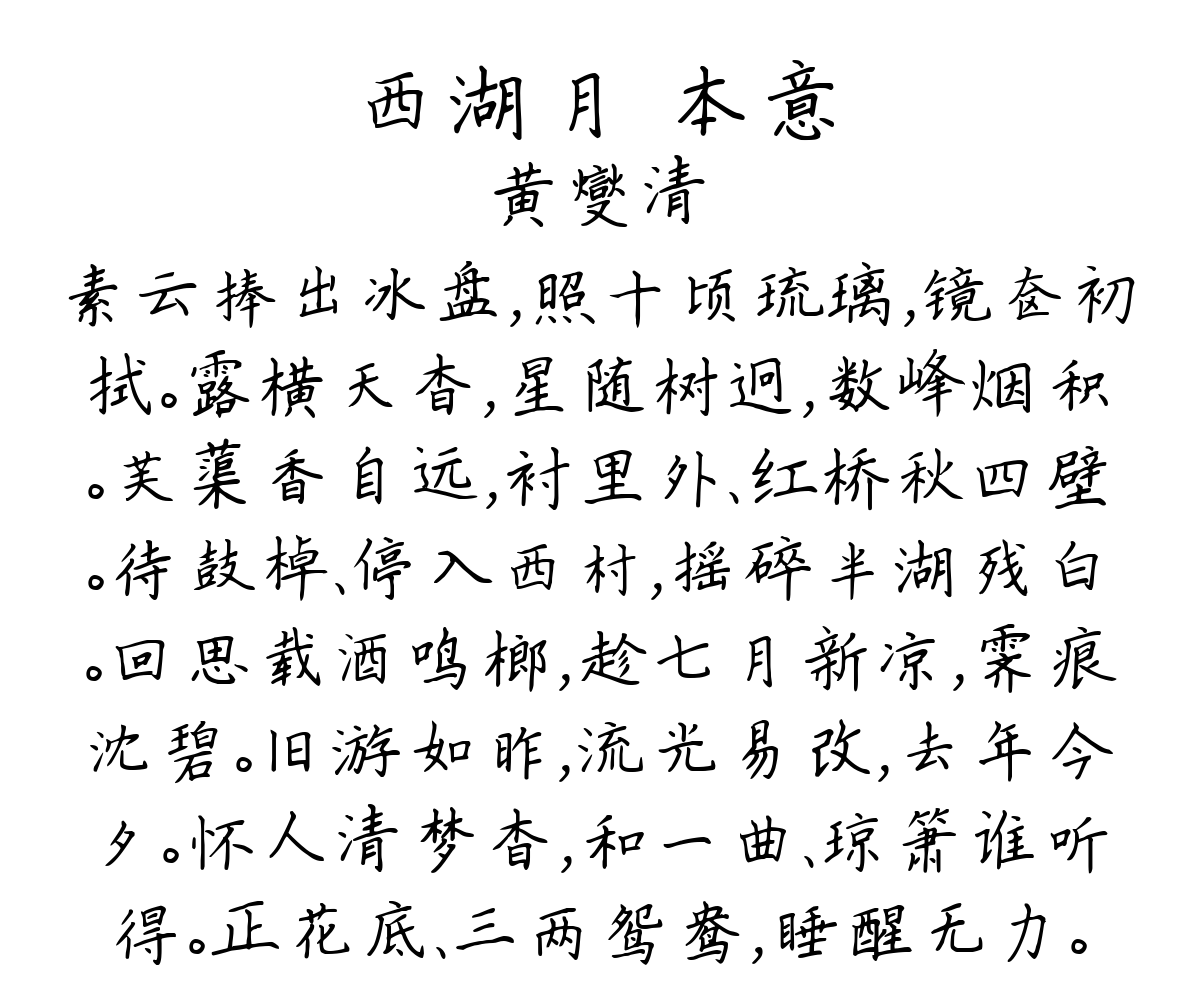 西湖月 本意
黄燮清
素云捧出冰盘,照十顷琉璃,镜奁初
拭。露横天杳,星随树迥,数峰烟积
。芙蕖香自远,衬里外、红桥秋四壁
。待鼓棹、停入西村,摇碎半湖残白
。回思载酒鸣榔,趁七月新凉,霁痕
沈碧。旧游如昨,流光易改,去年今
夕。怀人清梦杳,和一曲、琼箫谁听
得。正花底、三两鸳鸯,睡醒无力。